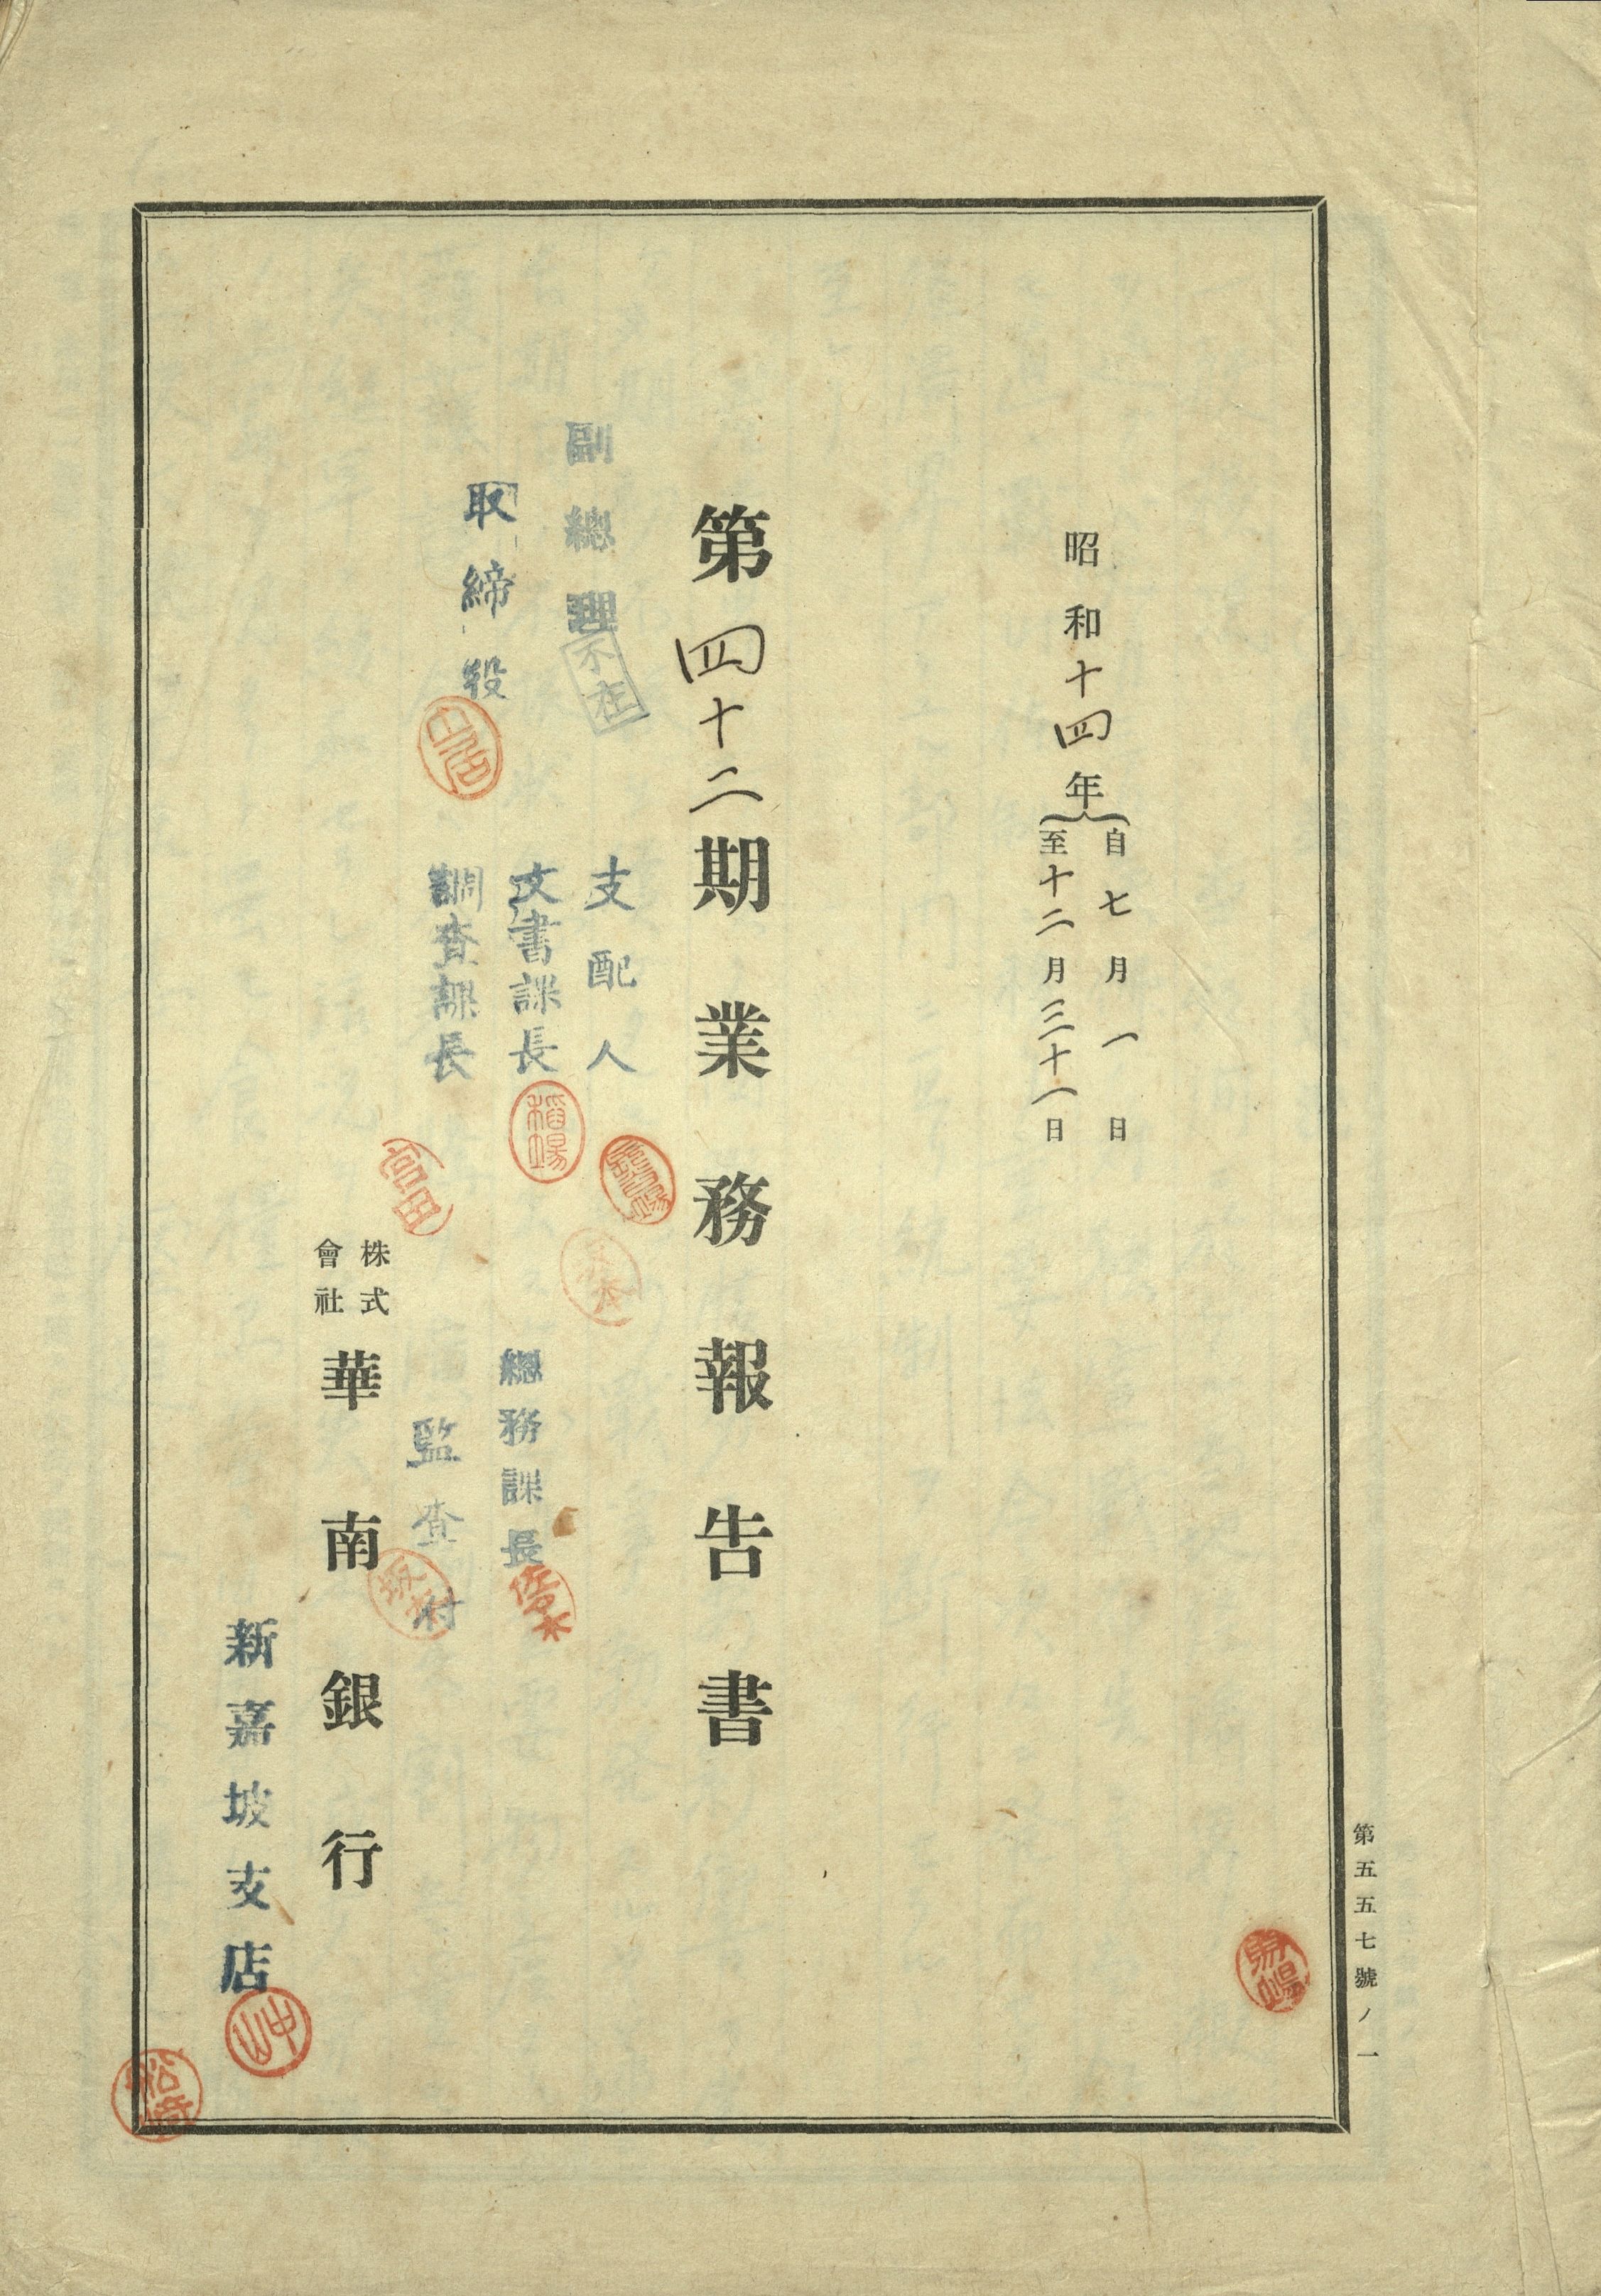 第五五七號ノ一
昭和十四年
自七月一日
至十二月三十一日
第四十二期業務報告書
副總理
不在
取締役
支配人
文書課長
稻場
調査課長
總務課長
監査
株式
會社
華南銀行
新嘉坡支店
中山